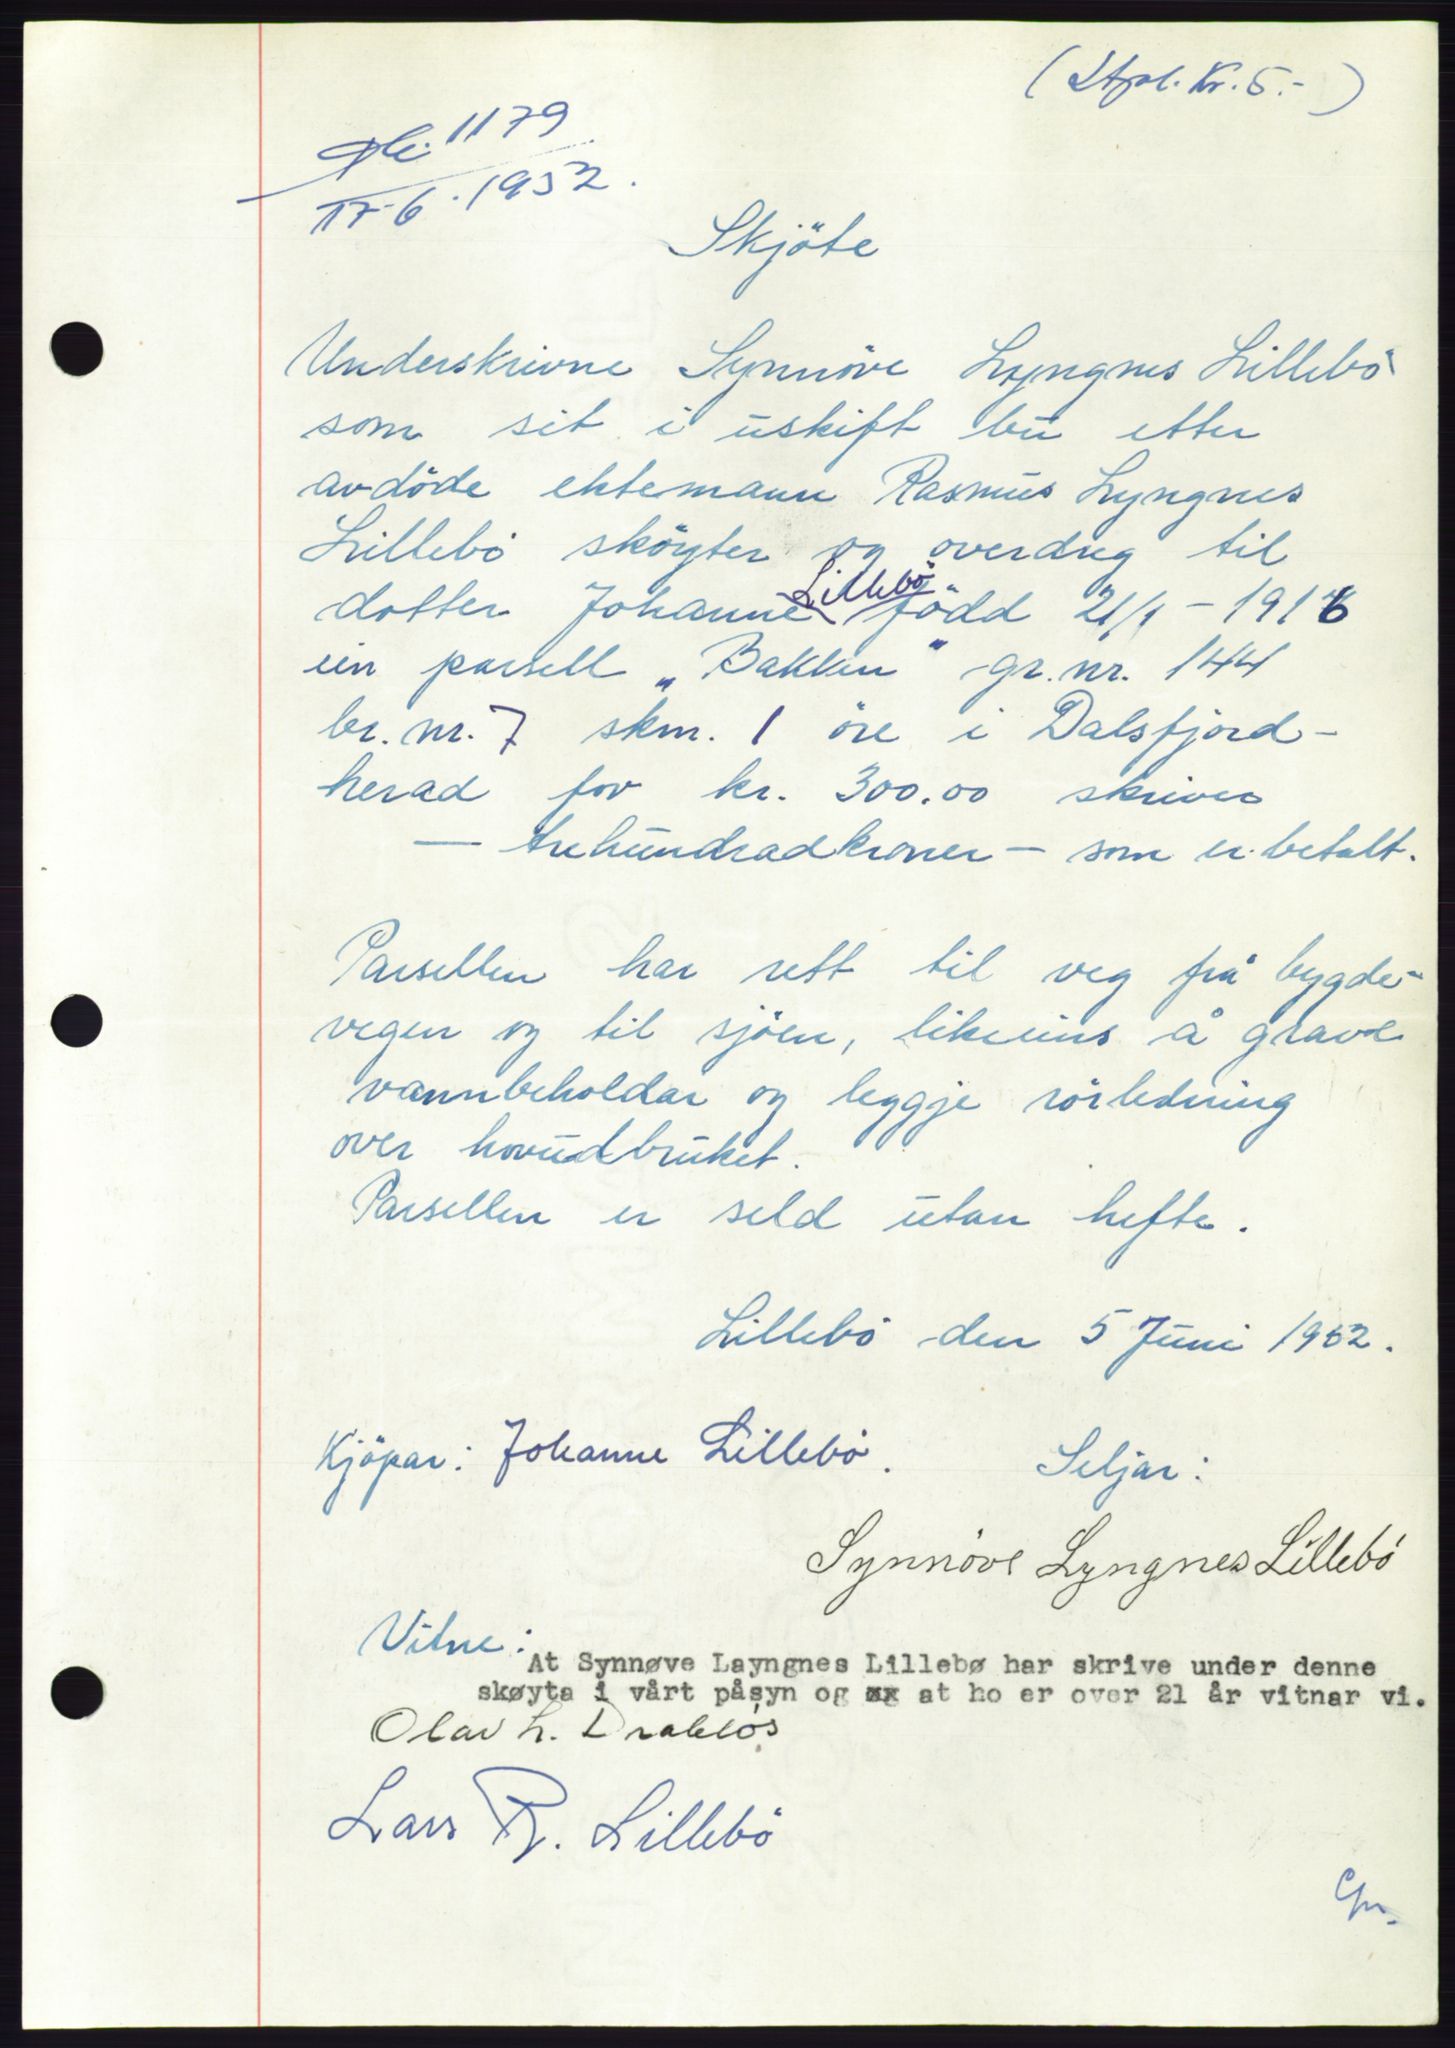 (Stpl. Kr. 5.-)
1179
17-6.1952.
Skjöte
Underskrivne Synnöve Lyngnes Lillebö
som sit i uskift bu etter
avdöde ektemann Rasmus Lyngnes
Lillebö sköyter og overdreg til
dotter Johanne Lillebö född 21/1 - 1916
ein parsell „Bakken" gr. nr. 144
br. nr. 7 skm. 1 öre i Dalsfjord-
herad for kr. 300.00 skriver
— trehundradkroner — som er betalt.
Parsellen har rett til veg frå bygde-
vegen og til sjöen, likeeins å grave
vannbeholdar og leggje rörledning
over hovudbruket.
Parsellen er seld utan hefte.
Lillebö den 5 Juni 1952.
Kjöpar: Johanne Lillebö. Seljar:
Synnöve Lyngnes Lillebö
Vitne:
At Synnøve Layngnes Lillebø har skrive under denne
skøyta i vårt påsyn og xx at ho er over 21 år vitnar vi.
Olav L. Drabløs
Lars R. Lillebö